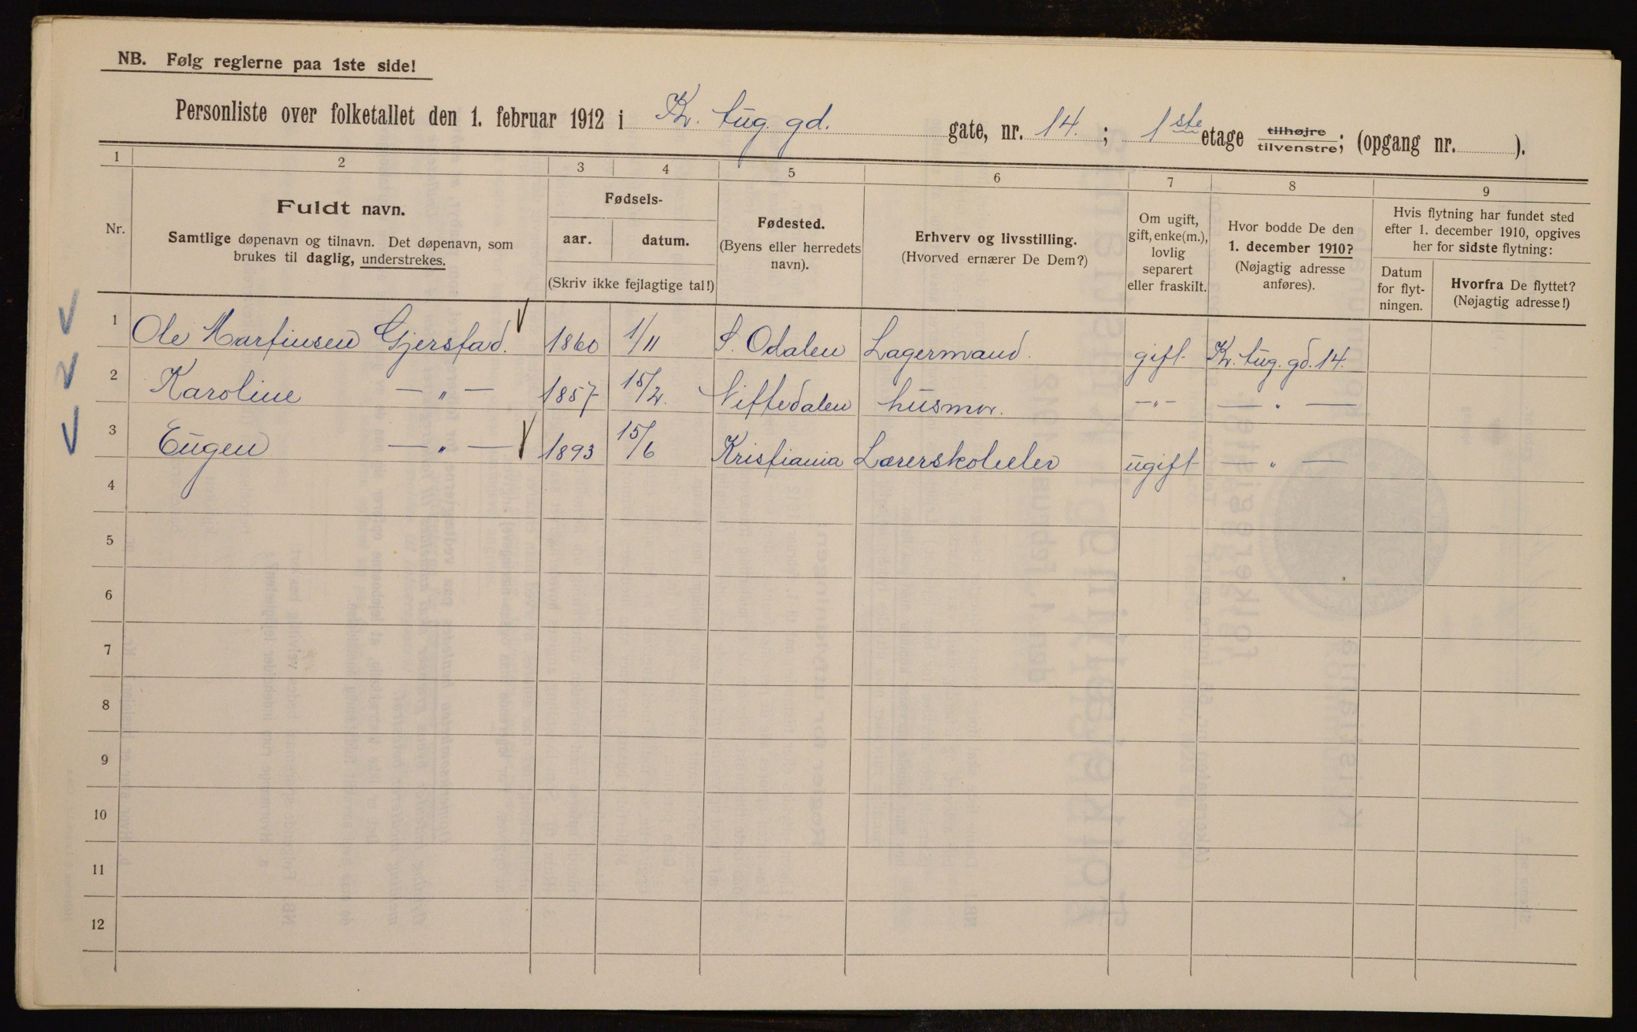 NB. Følg reglerne paa 1ste side!
Personliste over folketallet den 1. februar 1912 i Kr. tug. gd. gate, nr. 14. ; 1ste etage tilhøjre tilvenstre; (opgang nr. ).
1 2 3 4 5 6 7 8 9
Nr.
Fuldt navn.
Samtlige døpenavn og tilnavn. Det døpenavn, som
brukes til daglig, understrekes.
Fødsels-
aar. datum.
(Skriv ikke fejlagtige tal!)
Fødested.
(Byens eller herredets
navn).
Erhverv og livsstilling.
(Hvorved ernærer De Dem?)
Om ugift,
gift, enke(m.),
lovlig
separert
eller fraskilt.
Hvor bodde De den
1. december 1910?
(Nøjagtig adresse
anføres).
Hvis flytning har fundet sted
efter 1. december 1910, opgives
her for sidste flytning:
Datum
for flyt-
ningen.
Hvorfra De flyttet?
(Nøjagtig adresse!)
1 Ole Martinsen Gjerstad. 1860 1/11 S. Odalen Lagermand. gift Kr. tug. gd. 14.
2 Karoline — „ — 1857 15/2. Nittedalen husmor. — „ — — „ —
3 Eugen — „ — 1893 15/6 Kristiania Lærerskoleelev ugift — „ —
4
5
6
7
8
9
10
11
12